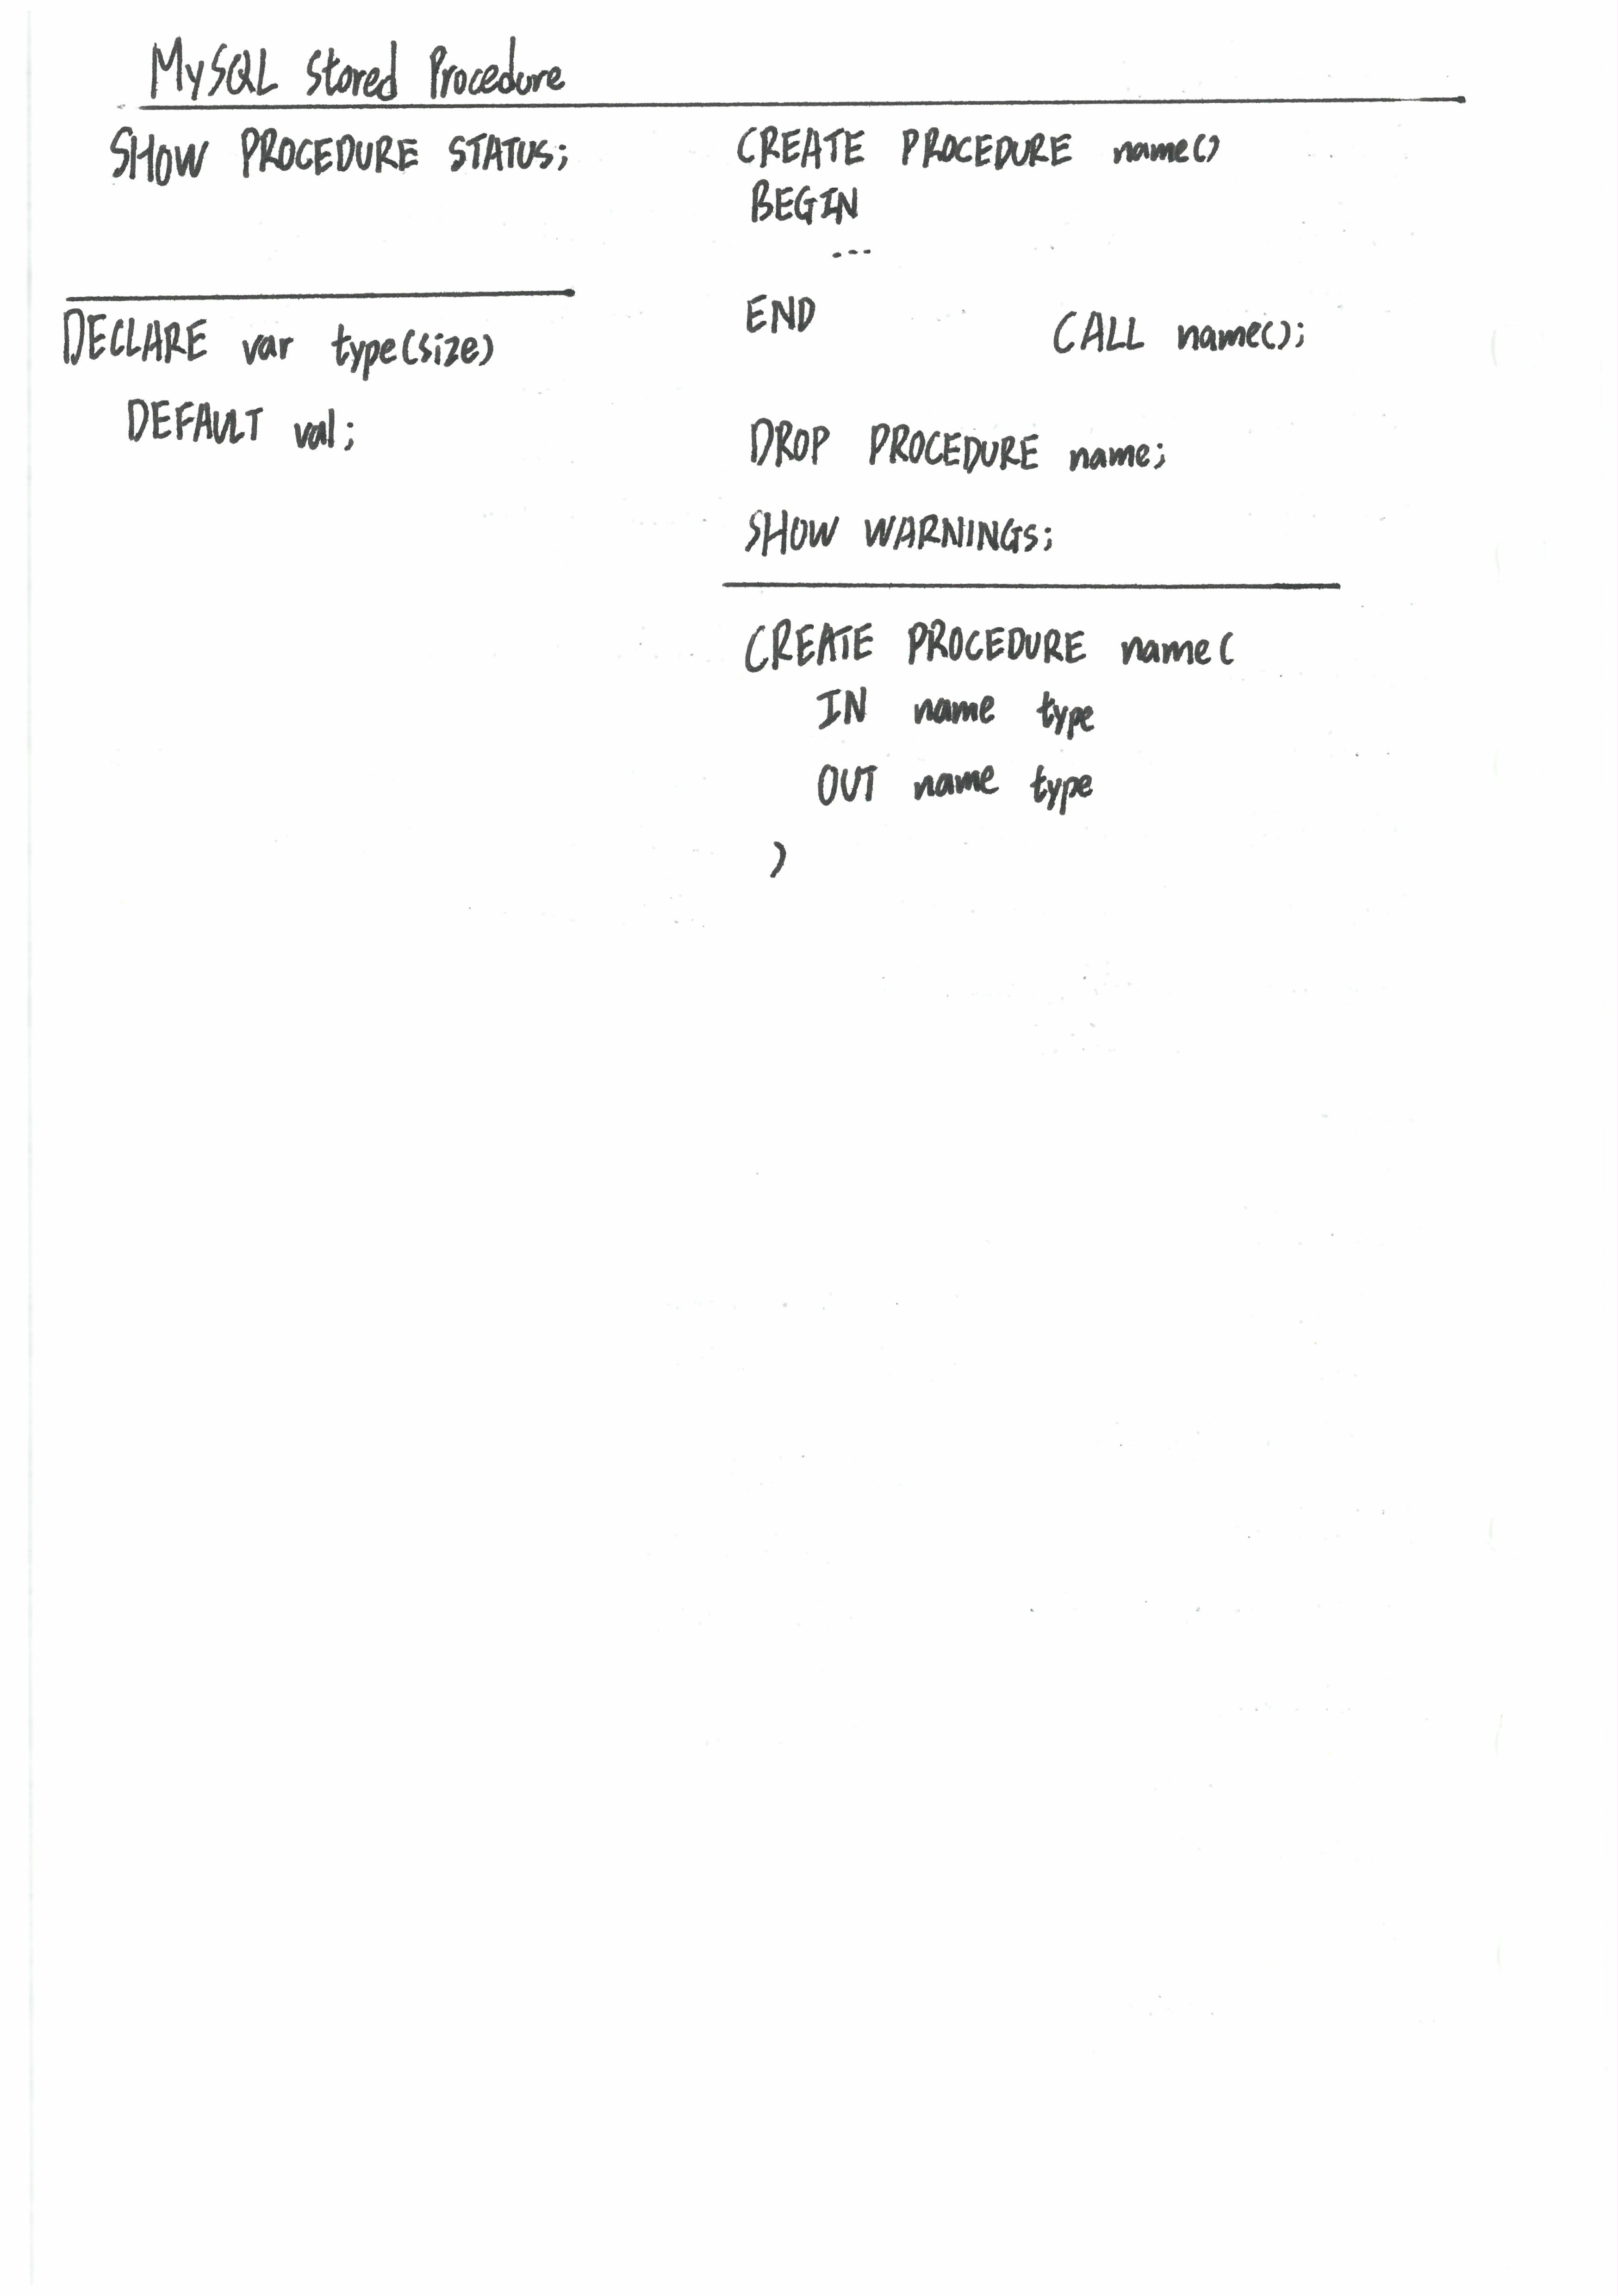 MySQL Stored Procedure
SHOW PROCEDURE STATUS;
DECLARE var type(size)
DEFAULT val;
CREATE PROCEDURE name()
BEGIN
---
END
CALL name();
DROP PROCEDURE name;
SHOW WARNINGS;
CREATE PROCEDURE name(
IN name type
OUT name type
)